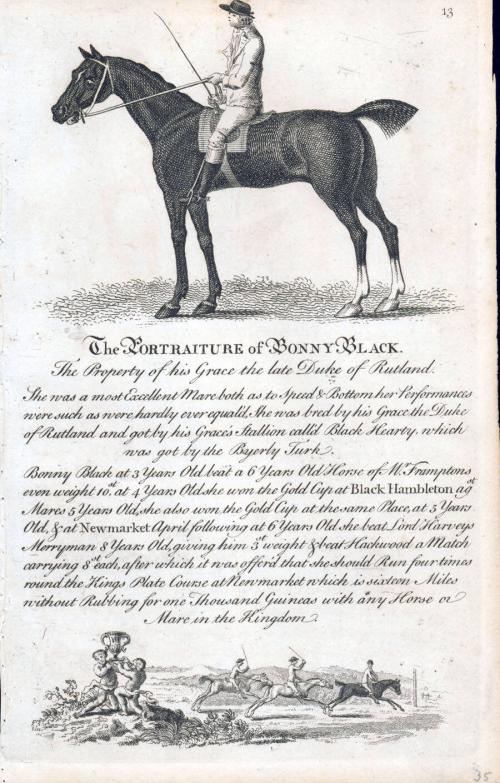 13
The PORTRAITURE of BONNY BLACK.
The Property of his Grace the late Duke of Rutland.
She was a most Excellent Mare both as to Speed & Bottom her Performances
were such as were hardly ever equald. She was bred by his Grace the Duke
of Rutland and got by his Grace's Stallion call'd Black Hearty, which
was got by the Byerly Turk.
Bonny Black at 3 Years Old beat a 6 Years Old Horse of Mr. Framptons
even weight 10st. at 4 Years Old she won the Gold Cup at Black Hambleton agst
Mares 5 Years Old, she also won the Gold Cup at the same Place, at 5 Years
Old, & at Newmarket April following at 6 Years Old she beat Lord Harveys
Merryman 8 Years Old, giving him 3st weight & beat Hackwood a Match
carrying 8st each, after which it was offer'd that she should Run four times
round the Kings Plate Course at Newmarket which is sixteen Miles
without Rubbing for one Thousand Guineas with any Horse or
Mare in the Kingdom.
35